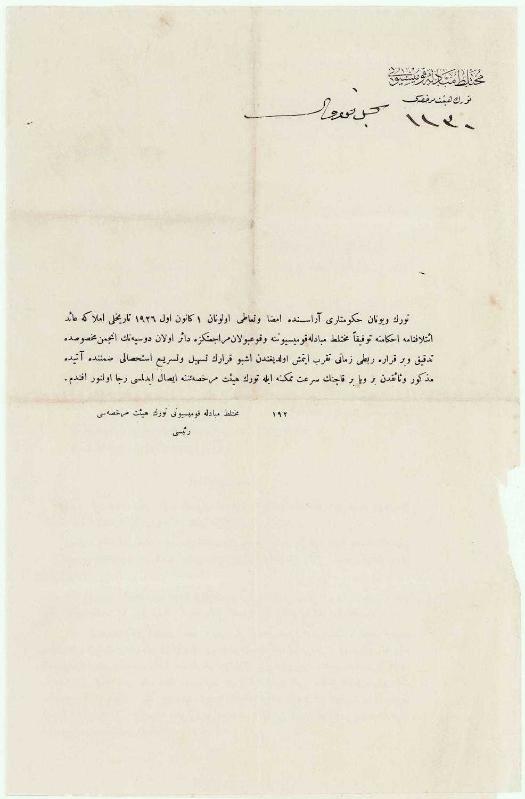 مختلط مبادله قومیسیونی
تورك هیئت مرخصه‌سی
١١٣٠
تورك ویونان حكومتلری آراسنده امضا وتعاطی اولونان ١ كانون اول ١٩٢٦ تاریخلی املاكه عائد
ائتلافنامه احكامنه توفیقاً مختلط مبادله قومیسیوننه وقوعبولان مراجعتكزه دائر اولان دوسیه‌نك انجمن مخصوصده
تدقیق وبر قراره ربطی زمانی تقرب ایتمش اولدیغندن اشبو قرارك تسهیل وتسریع استحصالی ضمننده آتیده
مذكور وثائقدن بر ویا بر قاچنك سرعت ممكنه ایله تورك هیئت مرخصه‌سنه ایصال ایدلمسی رجا اولنور افندم .
١٩٢
مختلط مبادله قومیسیونی تورك هیئت مرخصه‌سی
رئیسی